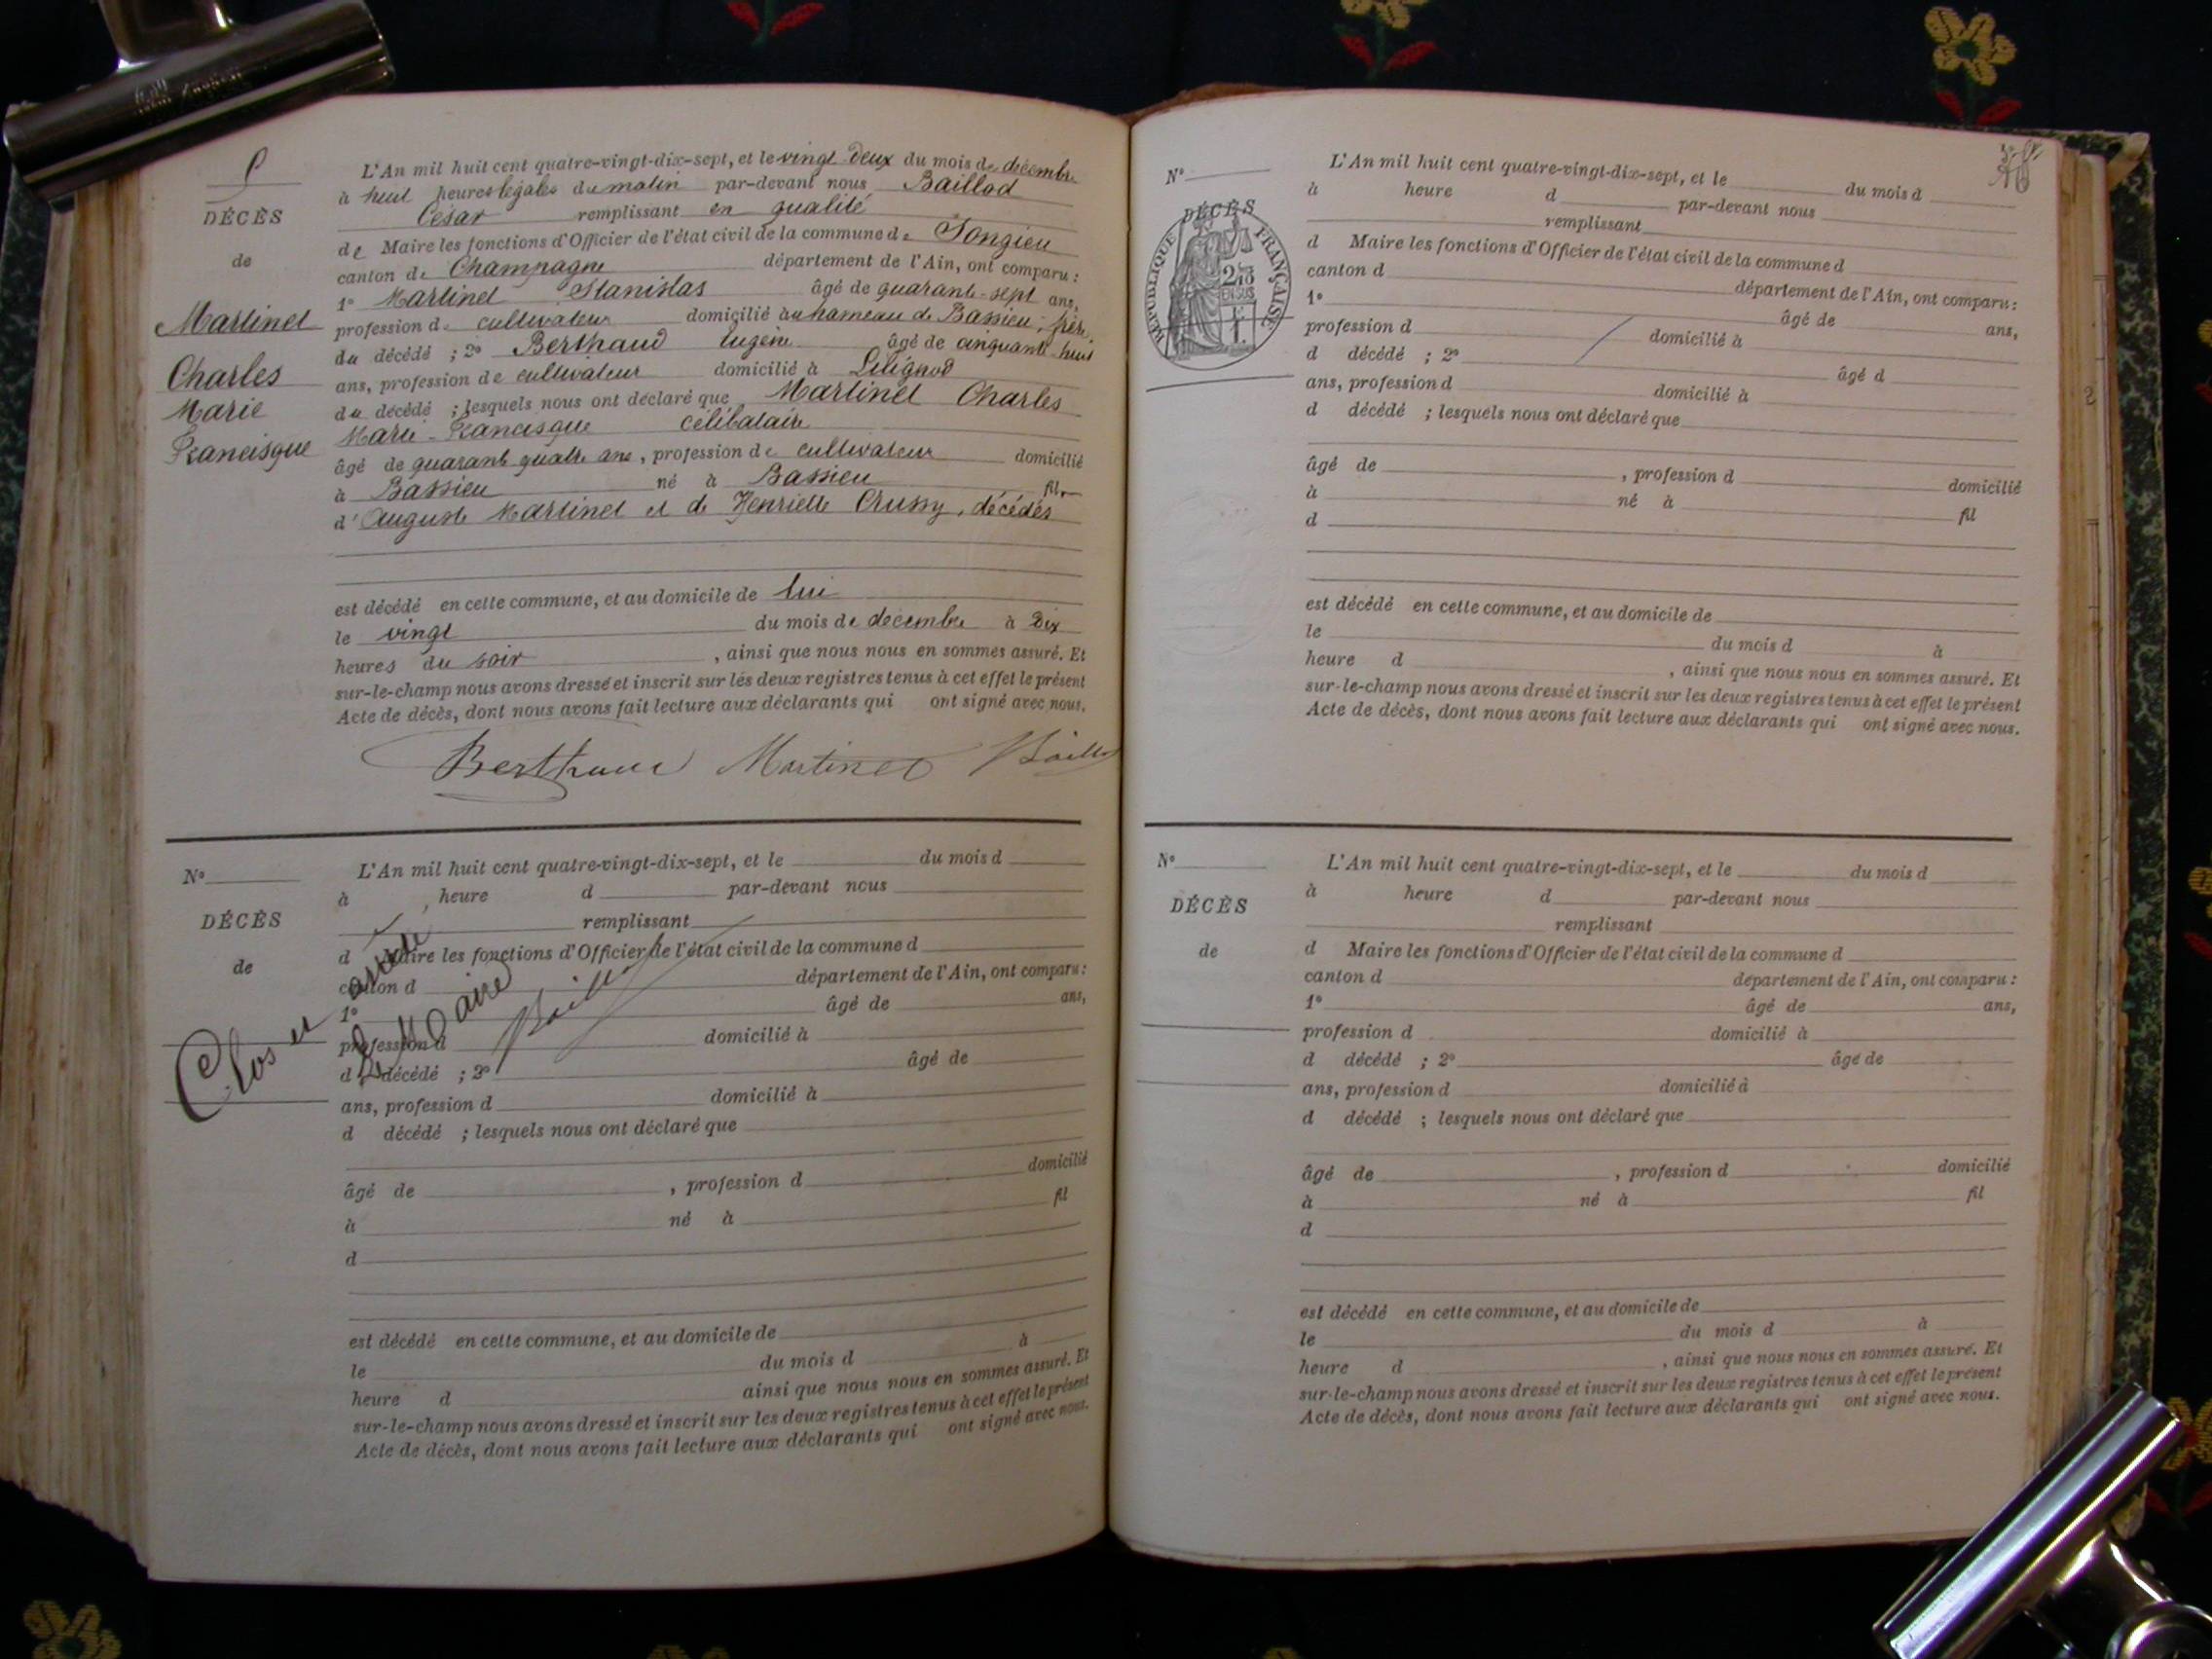 DÉCÈS
de
Martinet
Charles
Marie
Francisque
L'An mil huit cent quatre-vingt-dix-sept, et le vingt-deux du mois de décembre
à huit heures légales du matin par-devant nous Baillod
César remplissant en qualité
de Maire les fonctions d'Officier de l'état civil de la commune de Songieu
canton de Champagne département de l'Ain, ont comparu :
1° Martinet Stanislas âgé de quarante-sept ans,
profession de cultivateur domicilié au hameau de Bassieu, frère
du décédé ; 2° Berthaud Eugène âgé de cinquante-huit
ans, profession de cultivateur domicilié à Lilignod
du décédé ; lesquels nous ont déclaré que Martinet Charles
Marie-Francisque célibataire
âgé de quarante quatre ans, profession de cultivateur domicilié
à Bassieu né à Bassieu fils
d'Auguste Martinet et de Henriette Crussy, décédés
est décédé en cette commune, et au domicile de lui
le vingt du mois de décembre à dix
heures du soir , ainsi que nous nous en sommes assuré. Et
sur-le-champ nous avons dressé et inscrit sur les deux registres tenus à cet effet le présent
Acte de décès, dont nous avons fait lecture aux déclarants qui ont signé avec nous.
Berthaud Martinet Baillod
N°
DÉCÈS
de
L'An mil huit cent quatre-vingt-dix-sept, et le du mois d
à heure d par-devant nous
remplissant
d Maire les fonctions d'Officier de l'état civil de la commune d
canton d département de l'Ain, ont comparu :
1° âgé de ans,
profession d domicilié à
d décédé ; 2° âgé de
ans, profession d domicilié à
d décédé ; lesquels nous ont déclaré que
âgé de , profession d domicilié
à né à fil
d
est décédé en cette commune, et au domicile de
le du mois d à
heure d ainsi que nous nous en sommes assuré. Et
sur-le-champ nous avons dressé et inscrit sur les deux registres tenus à cet effet le présent
Acte de décès, dont nous avons fait lecture aux déclarants qui ont signé avec nous.
Clos et arrêté
Le Maire
Baillod
N°
DÉCÈS
RÉPUBLIQUE FRANÇAISE
EN SUS
L'An mil huit cent quatre-vingt-dix-sept, et le du mois d
à heure d par-devant nous
remplissant
d Maire les fonctions d'Officier de l'état civil de la commune d
canton d département de l'Ain, ont comparu :
1° âgé de ans,
profession d domicilié à
d décédé ; 2° âgé d
ans, profession d domicilié à
d décédé ; lesquels nous ont déclaré que
âgé de , profession d domicilié
à né à fil
d
est décédé en cette commune, et au domicile de
le du mois d à
heure d , ainsi que nous nous en sommes assuré. Et
sur-le-champ nous avons dressé et inscrit sur les deux registres tenus à cet effet le présent
Acte de décès, dont nous avons fait lecture aux déclarants qui ont signé avec nous.
N°
DÉCÈS
de
L'An mil huit cent quatre-vingt-dix-sept, et le du mois d
à heure d par-devant nous
remplissant
d Maire les fonctions d'Officier de l'état civil de la commune d
canton d département de l'Ain, ont comparu :
1° âgé de ans,
profession d domicilié à
d décédé ; 2° âgé de
ans, profession d domicilié à
d décédé ; lesquels nous ont déclaré que
âgé de , profession d domicilié
à né à fil
d
est décédé en cette commune, et au domicile de
le du mois d à
heure d , ainsi que nous nous en sommes assuré. Et
sur-le-champ nous avons dressé et inscrit sur les deux registres tenus à cet effet le présent
Acte de décès, dont nous avons fait lecture aux déclarants qui ont signé avec nous.